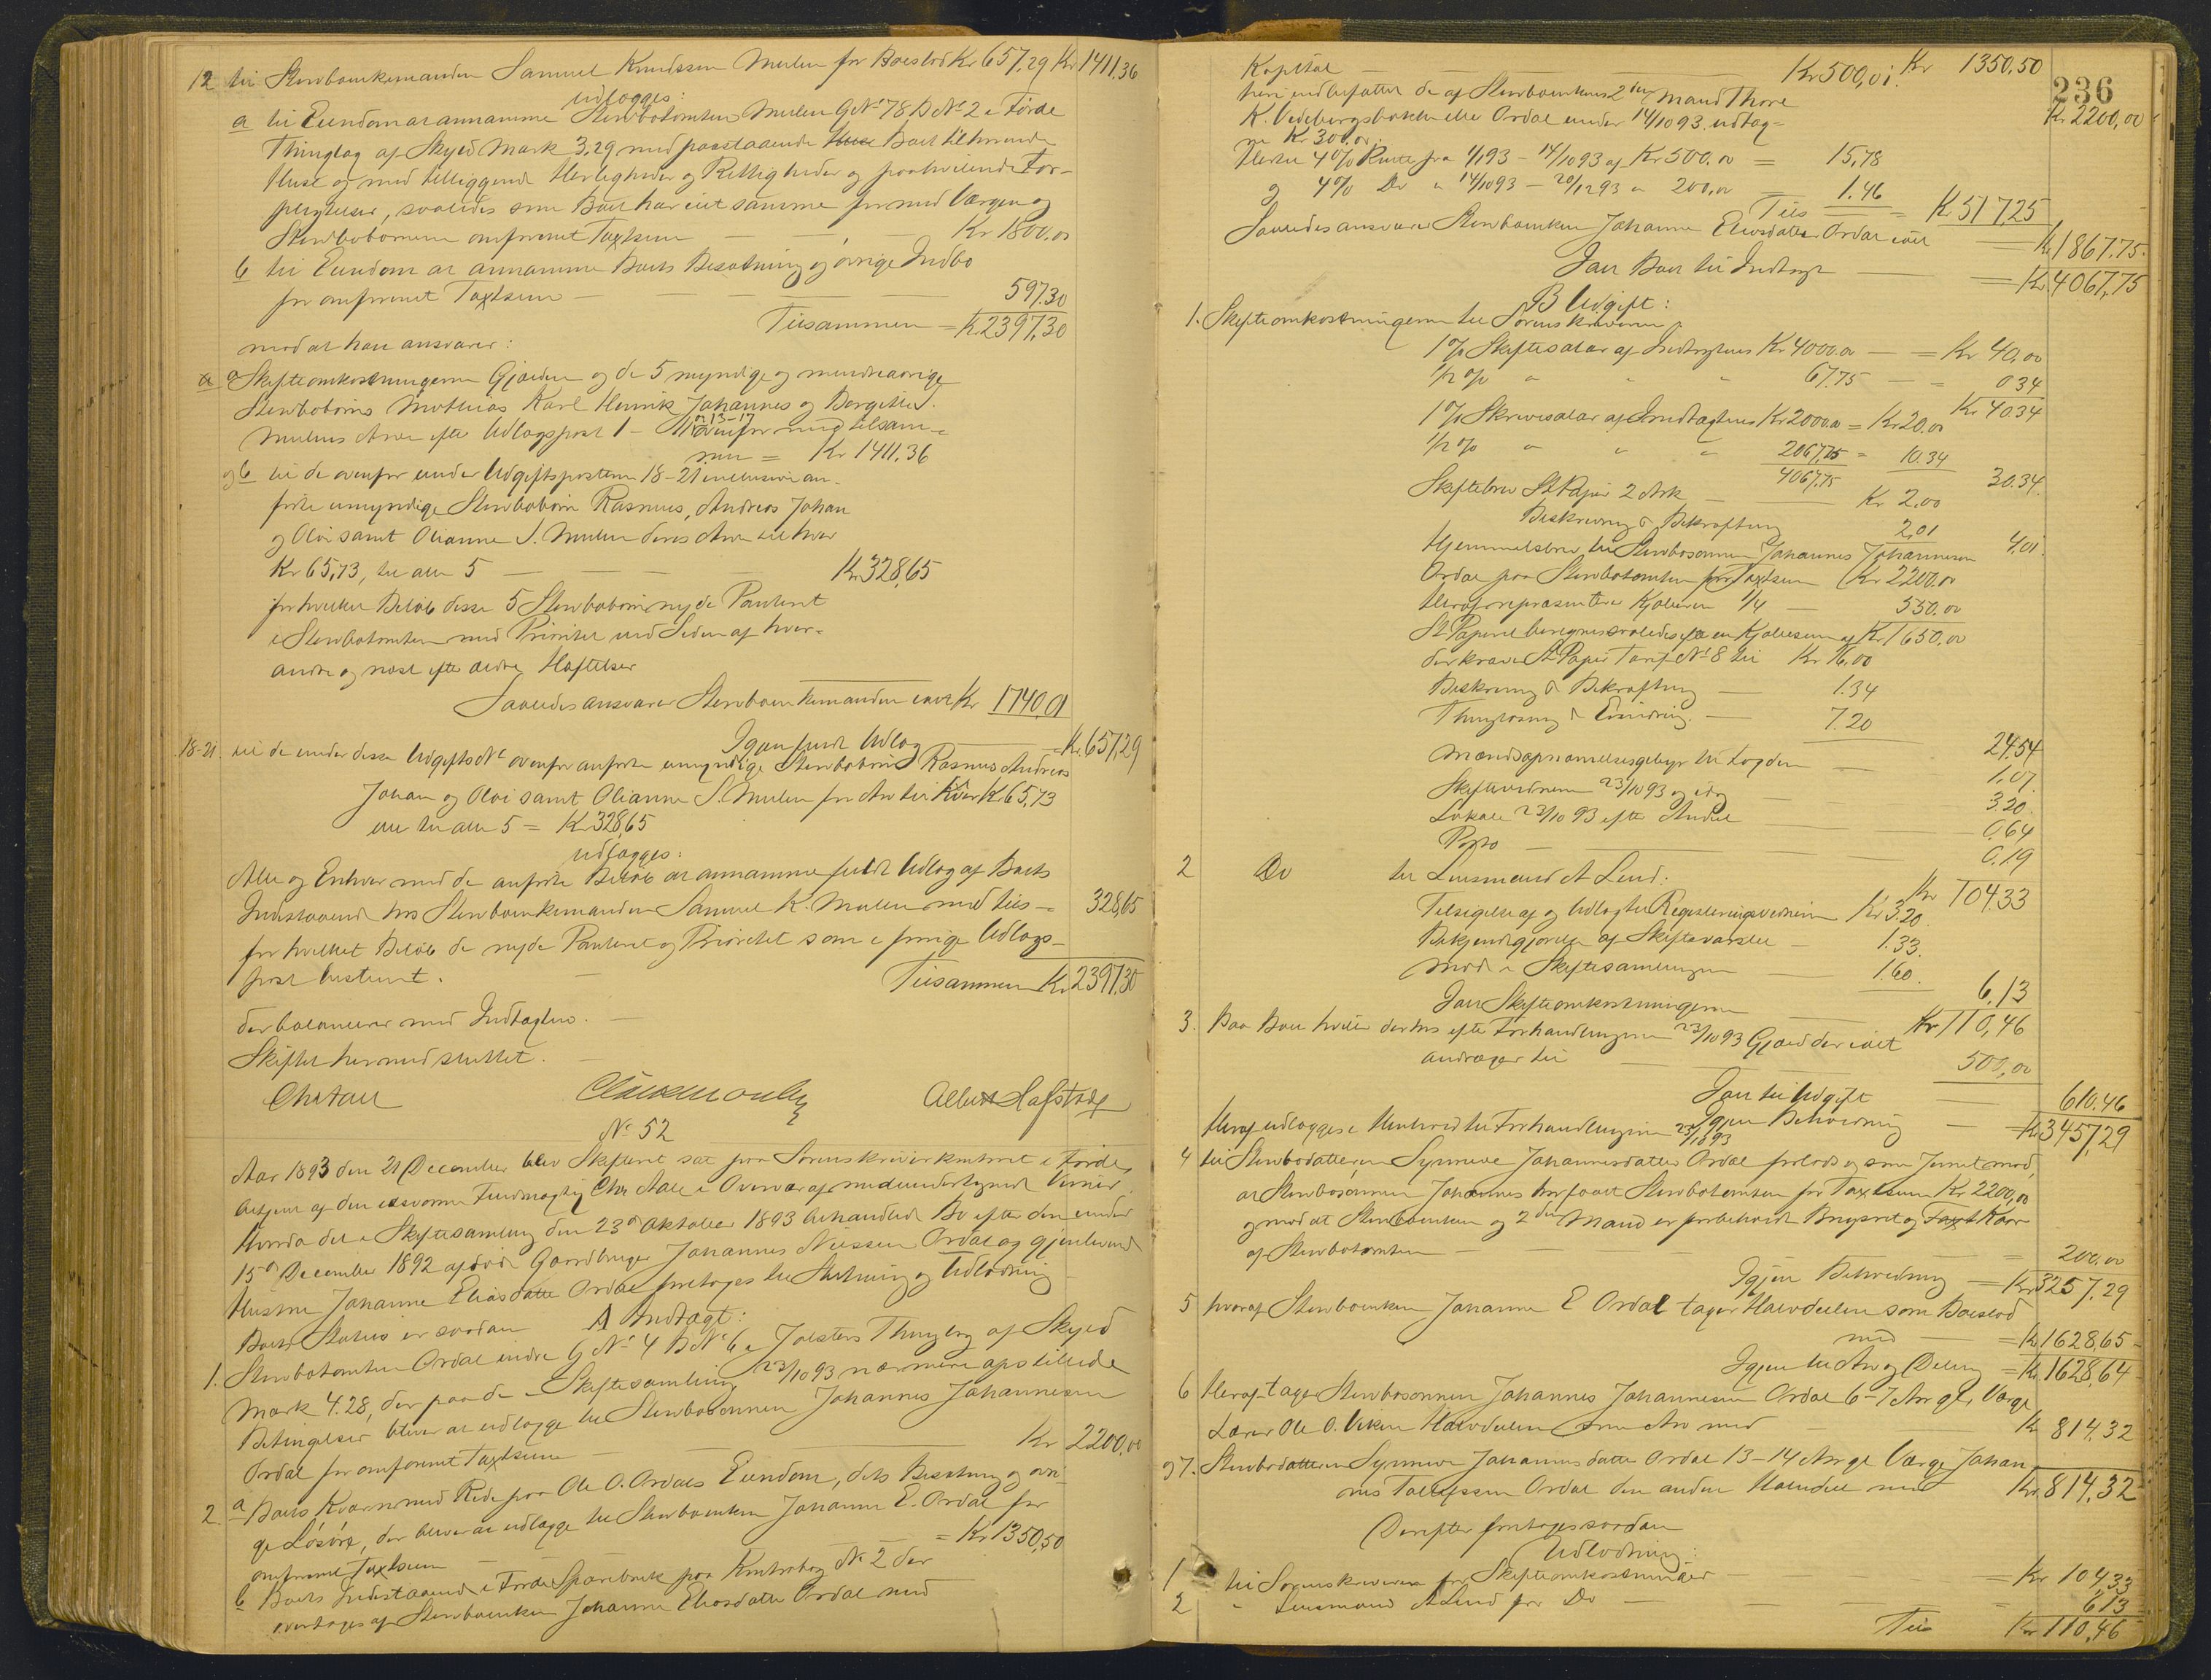 12 til Stervboenkemanden Samuel Knudssen Mulen for Boeslod Kr 657,29 Kr 1411,36
udlægges:
a til Eiendom at annamme Stervbotomten Mulen GNo 78 BNo 2 i Førde
Thinglag af Skyld Mark 3,29 med paastaaende Boet tilhørende
Huse og med tilliggende Herligheder og Rettigheder og paahvilende For-
pligtelser, saaledes som Boet har eiet samme for med Værgen og
Stervbobørnene omforenet Taxtsum Kr 1800,00
b til Eiendom at annamme Boets Besætning og øvrige Indbo
for omforenet Taxtsum 597.30
Tilsammen = Kr 2397,30
mod at han ansvarer:
a Skifteomkostningerne Gjælden og de 5 myndige og mindreaarige
Stervbobørns Mathias Karl Henrik Johannes og Bergitte S.
Mulens Arv efter Udlagspost 1 - 11 og 13-17 ovenfor med tilsam-
men = Kr 1411,36
og b til de ovenfor under Udgiftsposterne 18-21 inclusive an-
førte umyndige Stervbobørn Rasmus, Andreas Johan
og Olai samt Olianne S. Mulen deres Arv til hver
Kr 65,73, til alle 5 Kr 328,65
for hvilket Beløb disse 5 Stervbobørn nyde Panteret
i Stervbotomten med Prioritet ved Siden af hver-
andre og næst efter ældre Hæftelser
Saaledes ansvarer Stervboenkemanden ialt Kr 1740,01
Igjen fuldt Udlæg = Kr 657,29
18-21 til de under disse Udgifts No ovenfor anførte umyndige Stervbobørn Rasmus Andreas
Johan og Olai samt Olianne S. Mulen for Arv til hver Kr 65,73
eller til alle 5 = Kr 328,65
udlægges:
Alle og Enhver med de anførte Beløb at annamme fuldt Udlæg af Boets
Indestaaende hos Stervboenkemanden Samuel K. Mulen med tils- 328,65
for hvilket Beløb de nyde Panteret og Prioritet som i forrige Udlægs-
post bestemt. Tilsammen Kr 2397,30
der balancerer med Indtægten.
Skiftet hermed sluttet.
Chr Aall Albert Hafstad
No 52
Aar 1893 den 21 December blev Skifteret sat paa Sorenskriverkontoret i Førde,
betjent af den edsvorne Fuldmægtig Chr Aall i Overvær af medundertegnede Vidner
Hvorda det i Skiftesamling den 23de Oktober 1893 behandlede Bo efter den under
15de December 1892 afdøde Gaardbruger Johannes Nilssen Ordal og gjenlevende
Hustru Johanne Eliasdatter Ordal foretages til Slutning og Udlodning
Boets Status er saadan A Indtægt:
1. Stervbotomten Ordal indre GNo 4 BNo 6 i Jølsters Thinglag af Skyld
Mark 4.28, der paa de i Skiftesamling 23/10 93 nærmere opstillede
Betingelser bliver at udlægge til Stervbosønnen Johannes Johannesen
Ordal for omforenet Taxtsum Kr 2200,00
2. a Boets Kværn med Rede paa Ole O. Ordals Eiendom, dets Besætning og øvri-
ge Løsøre, der bliver at udlægge til Stervboenken Johanne E. Ordal for
omforenet Taxtsum = Kr 1350,50
b Boets Indestaaende i Førde Sparebank paa Kontrabog No 2 der
overtages af Stervboenken Johanne Eliasdatter Ordal med
236
Kapital Kr 500,01. Kr 1350,50 Kr 2200,00
heri indbefattet de af Stervboenkens 2den Mand Thore
K. Vedebergsbakken eller Ordal under 14/10 93 udtag-
ne Kr 300.00.
Hertil 4% Rente fra 1/1 93 - 14/10 93 af Kr 500.00 = 15,78
og 4% Do " 14/10 93 - 20/12 93 " 200,00 = 1.46
Tils = Kr 517,25
Saaledes ansvarer Stervboenken Johanne Eliasdatter Ordal ialt Kr 1867.75.
Jalt Boet til Indtægt = Kr 4067,75
B Udgift:
1. Skifteomkostningerne til Sorenskriveren
1% Skiftesalar af Indtægtens Kr 4000.00 = Kr 40,00
1/2% " " " 67.75 = 0 34
Kr 40.34
1% Skrivesalar af Indtægtens Kr 2000.00 = Kr 20.00
1/2% " " " 2067,75 = 10.34
4067,75 30.34.
Skiftebrev St Papir 2 Ark Kr 2,00
Beskrivning & Bekræftning 2,01 4,01
Hjemmelsbrev til Stervbosønnen Johannes Johannesen
Ordal paa Stervbotomten for Taxtsum Kr 2200.00
Heraf repræsenterer Kjøberen 1/4 550.00
St Papiret beregnes saaledes efter en Kjøbesum af Kr 1650,00
der kræver St Papir Tarif No 8 til Kr 16,00
Beskrivning & Bekræftning 1.34
Thinglæsning & Extrahering. 7.20
24.54
Mandsopnævnelsesgebyr til Fogden 1,07.
Skiftevidnerne 23/10 93 og idag 3.20.
Lokale 23/10 93 efter Andeel 0,64
Porto 0.19
Kr 104.33
2 Do til Lensmand A Lind:
Tilsigelse af og Udlæg til Registeringsvidnerne Kr 3.20
Bekjendtgjørelse af Skiftevarslet 1.33.
Møde i Skiftesamlingen 1.60. 6,13
Jalt Skifteomkostningerne Kr 110,46
3. Paa Boet hviler derhos efter Forhandlingerne 23/10 93 Gjæld der ialt
andrager til 500,00
Jalt til Udgift 610.46
Igjen Beholdning = Kr 3457,29
Heraf udlægges i Henhold til Forhandlingerne 23/10 93
4 til Stervbodatteren Synneve Johannesdatter Ordal forlods og som Jevnet mod,
at Stervbosønnen Johannes har faaet Stervbotomten for Taxtsum Kr 2200,00
og mod at Stervboenken og 2den Mand er forbeholdt Brugsret og Kaar
af Stervbotomten = 200.00
Igjen Beholdning = Kr 3257.29
5 hvoraf Stervboenken Johanne E Ordal tager Halvdelen som Boeslod
med = Kr 1628,65
Igjen til Arv og Deling = Kr 1628,64
6 Heraf tager Stervbosønnen Johannes Johannesen Ordal 6-7 Aar gl. Værge
Lærer Ole O. Viken Halvdelen som Arv med Kr 814,32
og 7. Stervbodatteren Synneve Johannesdatter Ordal 13-14 Aar gl Værge Johan-
nes Tollefssen Ordal den anden Halvdel med Kr 814,32
Derefter foretages saadan
Udlodning:
1 til Sorenskriveren for Skifteomkostninger = Kr 104,33
2 " Lensmand A Lind for Do 6,13
Tils Kr 110,46